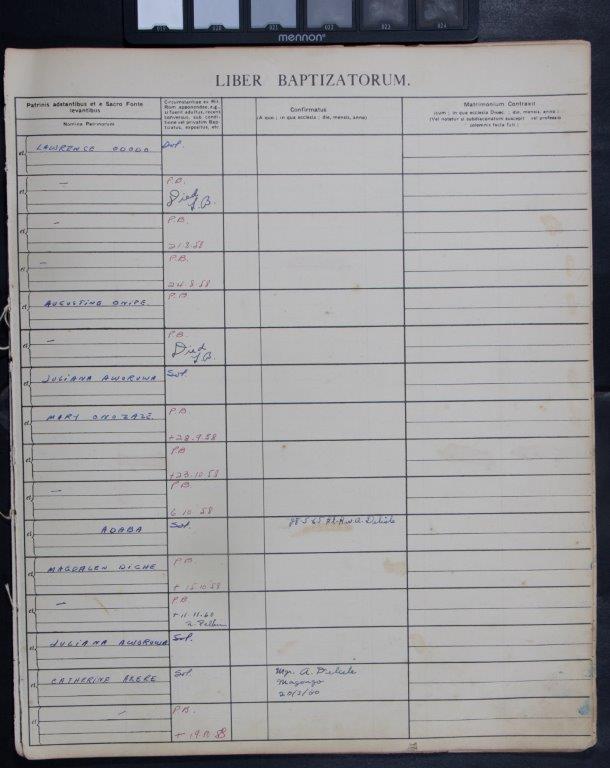 019 020 021 022 023 024
mennon
LIBER BAPTIZATORUM.
Patrinis adstantibus et e Sacro Fonte levantibus
Nomina Patrinorum
Circumstantiae ex Rit. Rom. apponendae, e.g., si fuerit adultus, recens conversus, sub conditione vel privatim Baptizatus, expositus, etc.
Confirmatus
(A quo ; in qua ecclesia ; die, mensis, anno)
Matrimonium Contraxit
(cum ; in qua ecclesia Dioec. ; die, mensis, anno ;
(Vel notetur si subdiaconatum suscepit vel professio solemnis facta fuit ;
LAWRENCE ODODO Sol.
— P.B.
Died
J.B.
— P.B.
21.8.58
— P.B.
24.8.58
AUGUSTINE ONIPE P.B.
— P.B.
Died
J.B.
JULIANA AWORUWA Sol.
MARY ONOZAZE P.B.
+28.9.58
P.B
+23.10.58
— P.B.
6.10.58
ADABA Sol. A. Delisle
MAGDALEN DICHE P.B.
+ 15.10.58
— P.B.
+ 11.11.60
JULIANA AWORUWA Sol.
CATHERINE Sol. Mgr. A. Delisle
Magongo
20/3/60
— P.B.